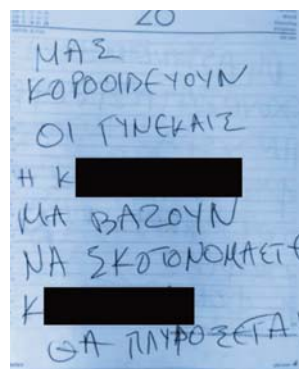 20
ΜΑΣ
ΚΟΡΟΟΙΔΕΥΟΥΝ
ΟΙ ΓΥΝΕΚΑΙΣ
Η Κ
ΜΑ ΒΑΖΟΥΝ
ΝΑ ΣΚΟΤΟΝΟΜΑΣΤΕ
Κ
ΘΑ ΠΛΥΡΟΣΕΤΑ